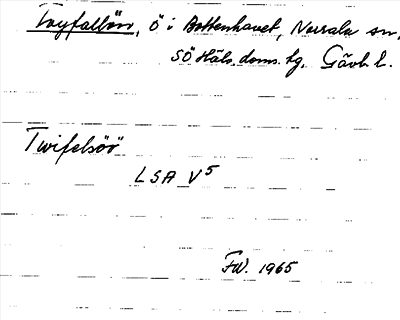 Tvyfallön, ö i Bottenhavet, Norrala sn,
SÖ Häls. doms. tg, Gävl. l.
Twifelsöö
LSA V5
FW. 1965